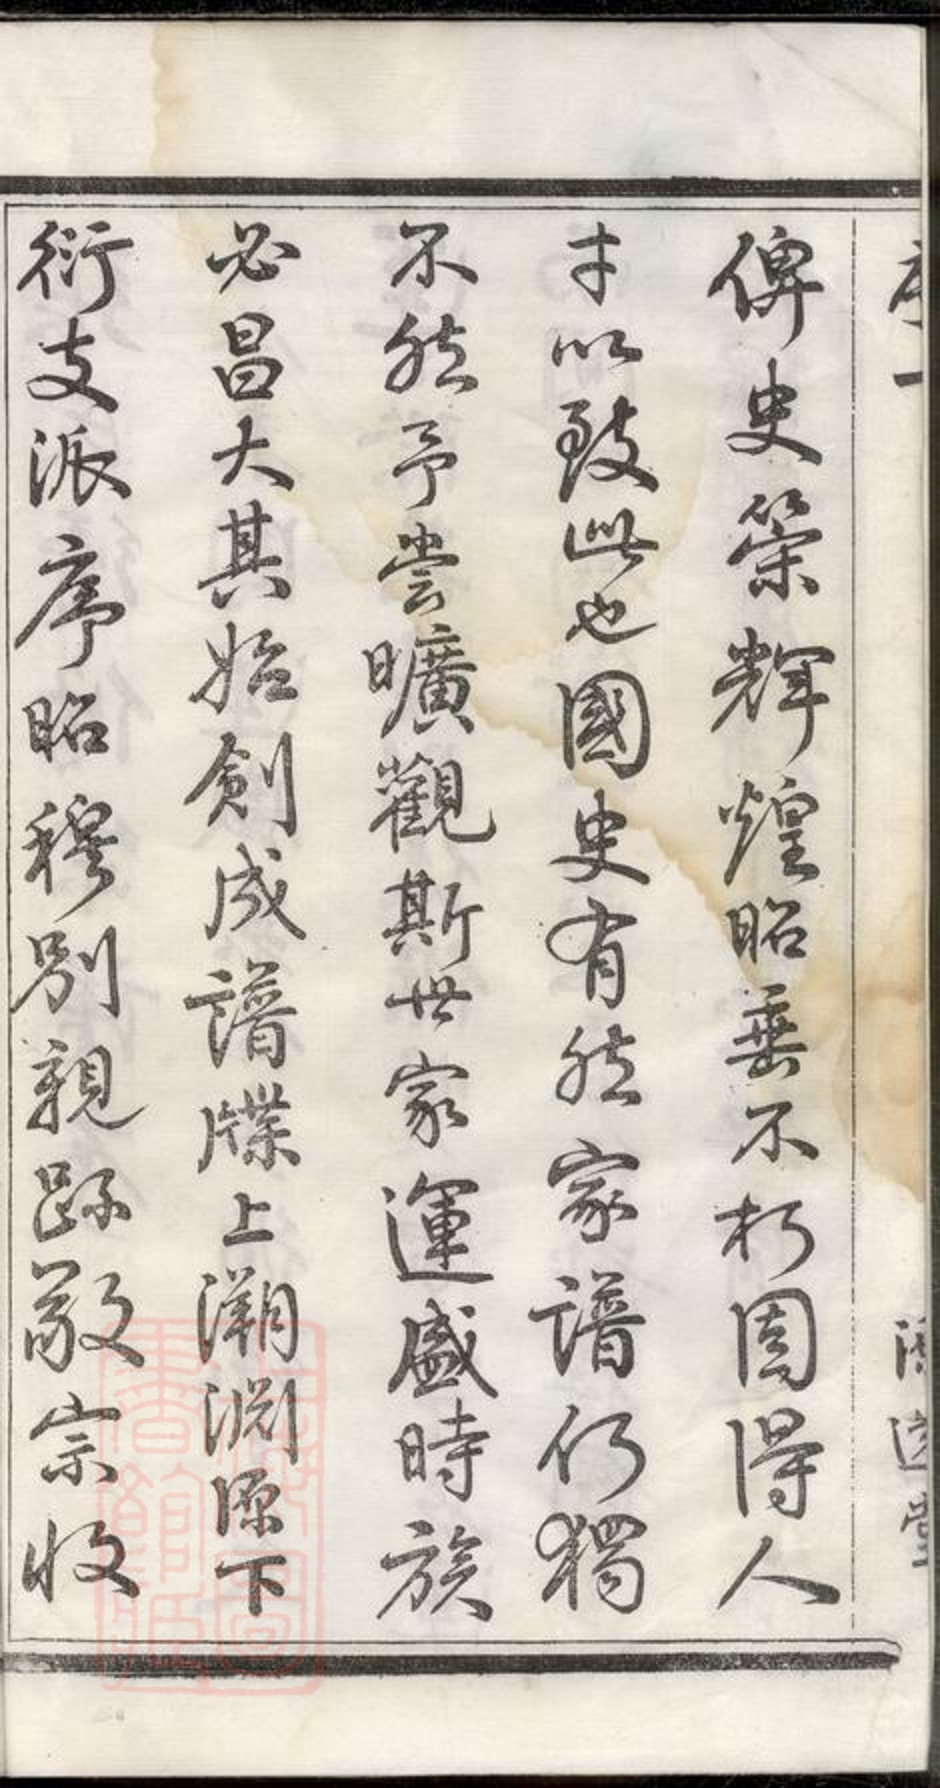 俾史策輝煌昭垂不朽固得人
才以致此也國史有然家譜何獨
不然予嘗曠觀斯世家運盛時族
必昌大其始創成譜牒上溯淵源下
衍支派序昭穆別親疏敬宗收